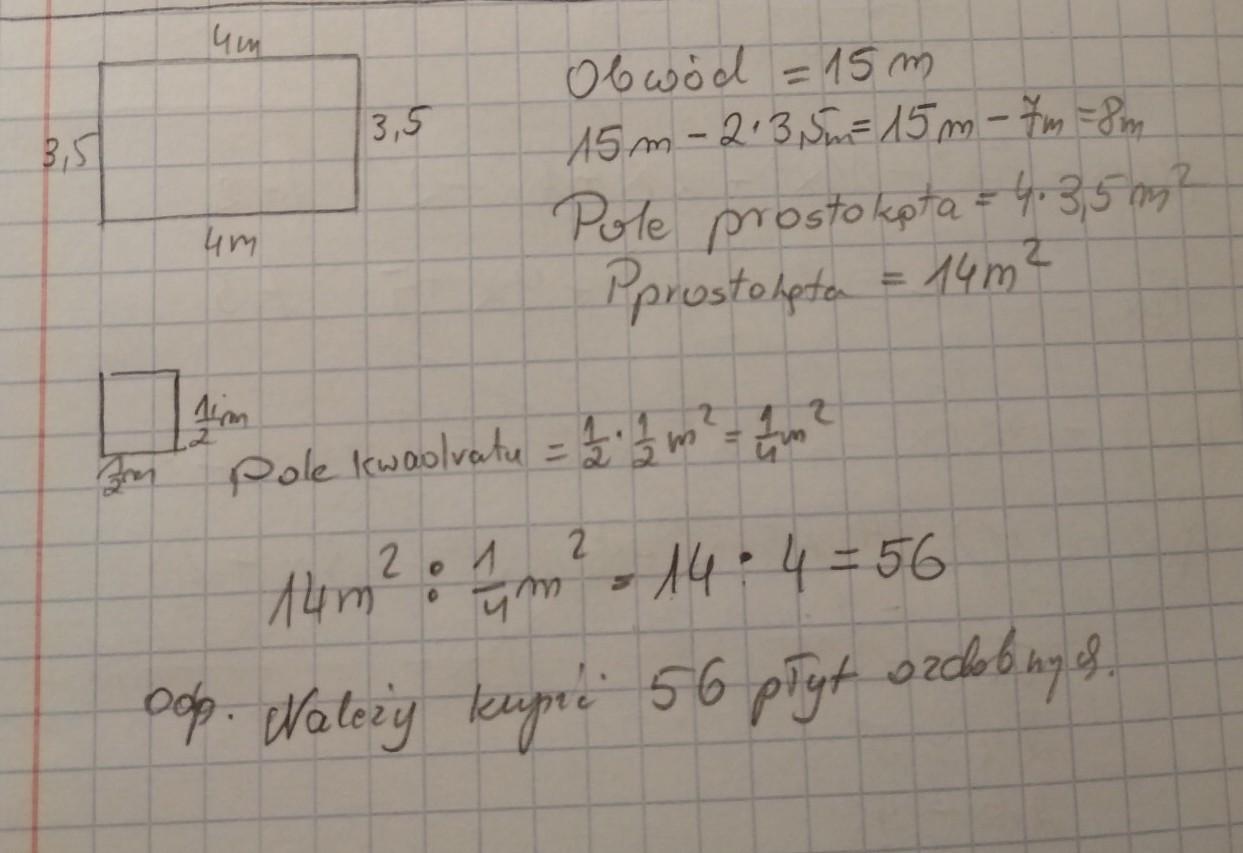 4m
Obwód = 15 m
3,5
3,5
15m - 2·3,5m = 15m - 7m = 8m
4m
Pole prostokąta = 4·3,5 m²
Pprostokąta = 14m²
1/2 m
1/2 m
Pole kwadratu = 1/2 · 1/2 m² = 1/4 m²
14m² : 1/4 m² = 14 · 4 = 56
Odp. Należy kupić 56 płyt ozdobnych.